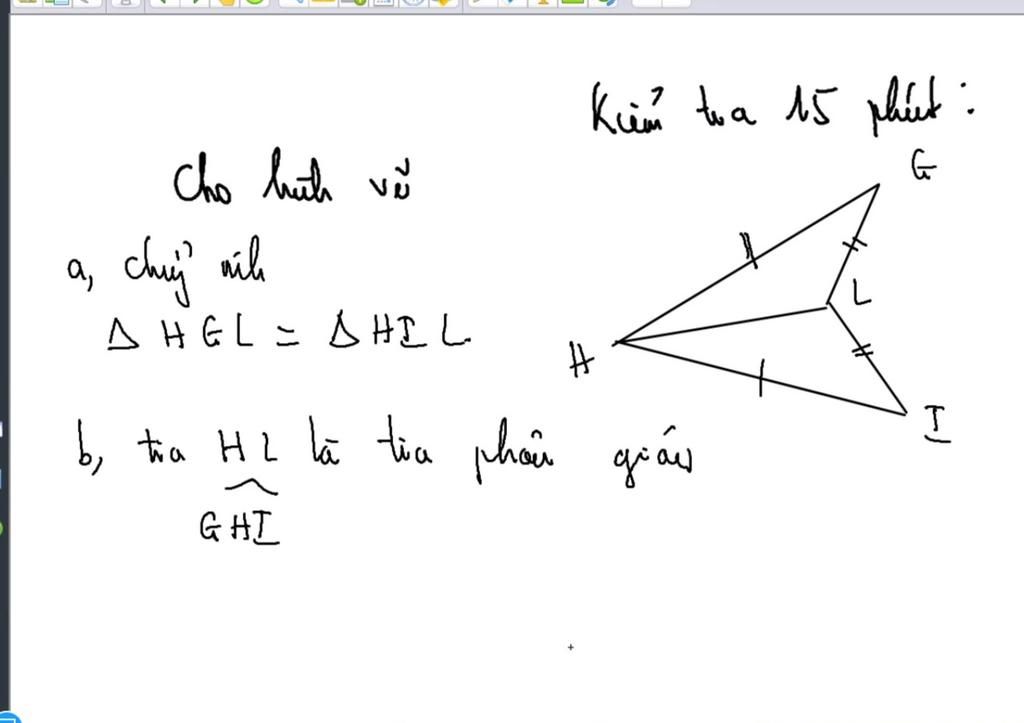 Kiểm tra 15 phút:
Cho hình vẽ
a, chứng minh
Δ HGL = Δ HIL
b, tia HL là tia phân giác
GHI
G
L
H
I